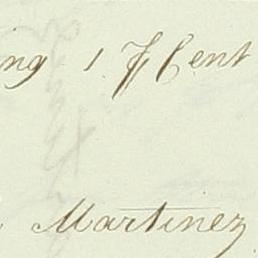 ing 1 ⅌ Cent
Martinez